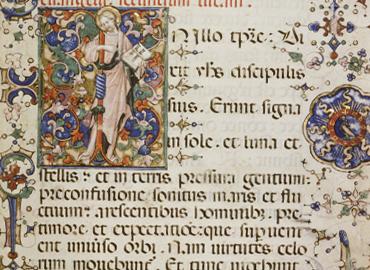 N illo tpre: Di
xit yhs discipulis
suis. Erunt signa
in sole. et luna et
stellis: et in terris pressura gentium:
pre confusione sonitus maris et flu
ctuum: arescentibus hominibz pre
timore et expectatione: que superueni
ent uniuso orbi. Nam uirtutes celo
rum mouebunt. Et tunc uidebunt